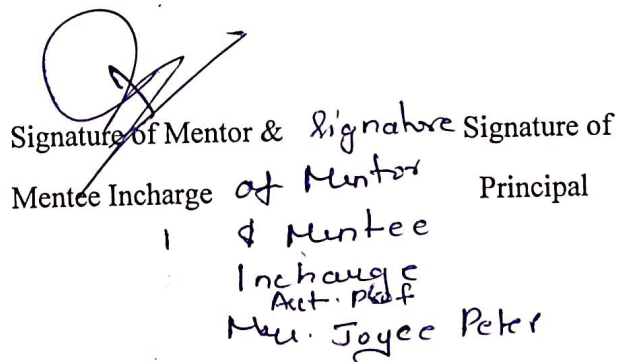 Signature of Mentor & Signature Signature of
Mentee Incharge of Mentor Principal
1 & Mentee
Incharge
Asst. Prof
Joyce Peter